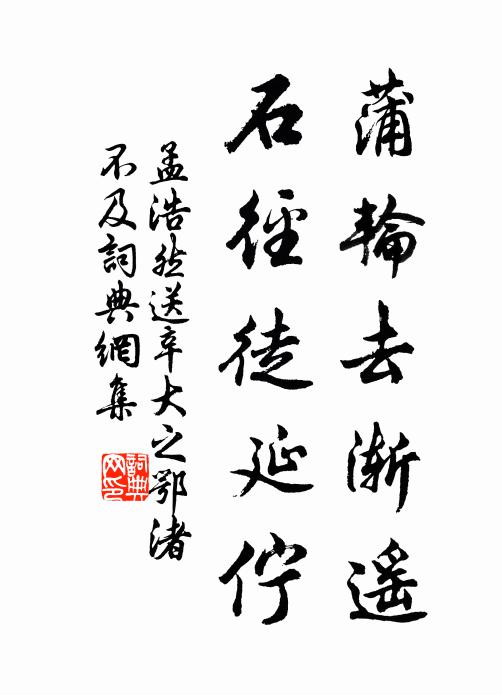 蒲輪去漸遥
石徑徒延佇
孟浩然送辛大之鄂渚
不及詞典網集
詞典網印